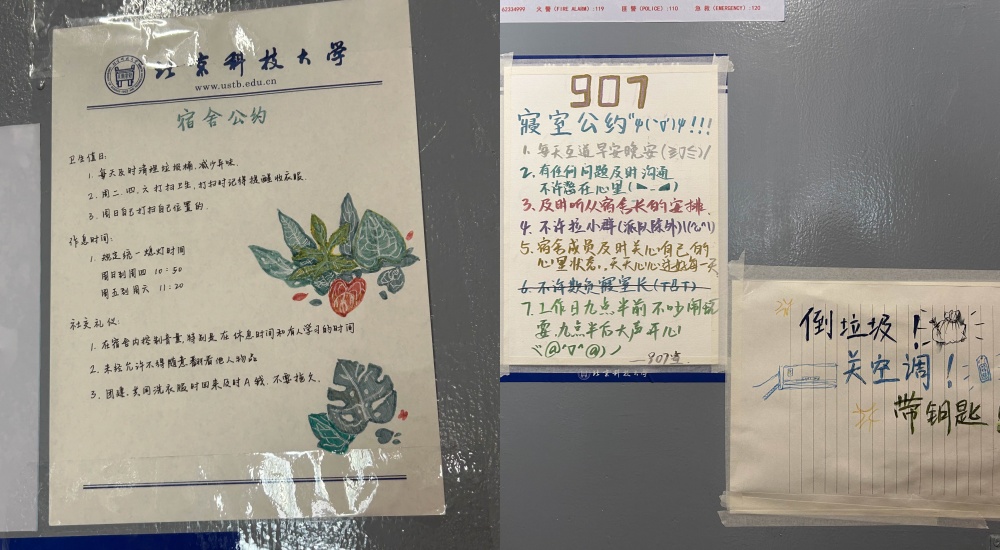 北京科技大学
www.ustb.edu.cn
宿舍公约
卫生值日:
1. 每天及时清理垃圾桶,减少异味.
2. 周二、四、六打扫卫生,打扫时记得提醒收衣服.
3. 周日自己打扫自己位置的.
作息时间:
1. 规定统一熄灯时间
周日到周四 10:50
周五到周六 11:20
社交礼仪:
1. 在宿舍内控制音量,特别是在休息时间和有人学习的时间
2. 未经允许不得随意翻看他人物品
3. 团建、共同洗衣服时回来及时A钱,不要拖欠.
62334999 火警(FIRE ALARM):119 匪警(POLICE):110 急救(EMERGENCY):120
907
寝室公约"ψ(`∇´)ψ!!!
1. 每天互道早安晚安
2. 有任何问题及时沟通
不许憋在心里
3. 及时听从宿舍长的安排.
4. 不许拉小群(派队除外)
5. 宿舍成员及时关心自己的
心里状态,天天开心过好每一天
6. 不许欺负寝室长(TAT)
7. 工作日九点半前不吵闹玩
耍,九点半后大声开心!
ヾ(@^▽^@)ノ
—907宣
北京科技大学
倒垃圾!
关空调!
带钥匙!